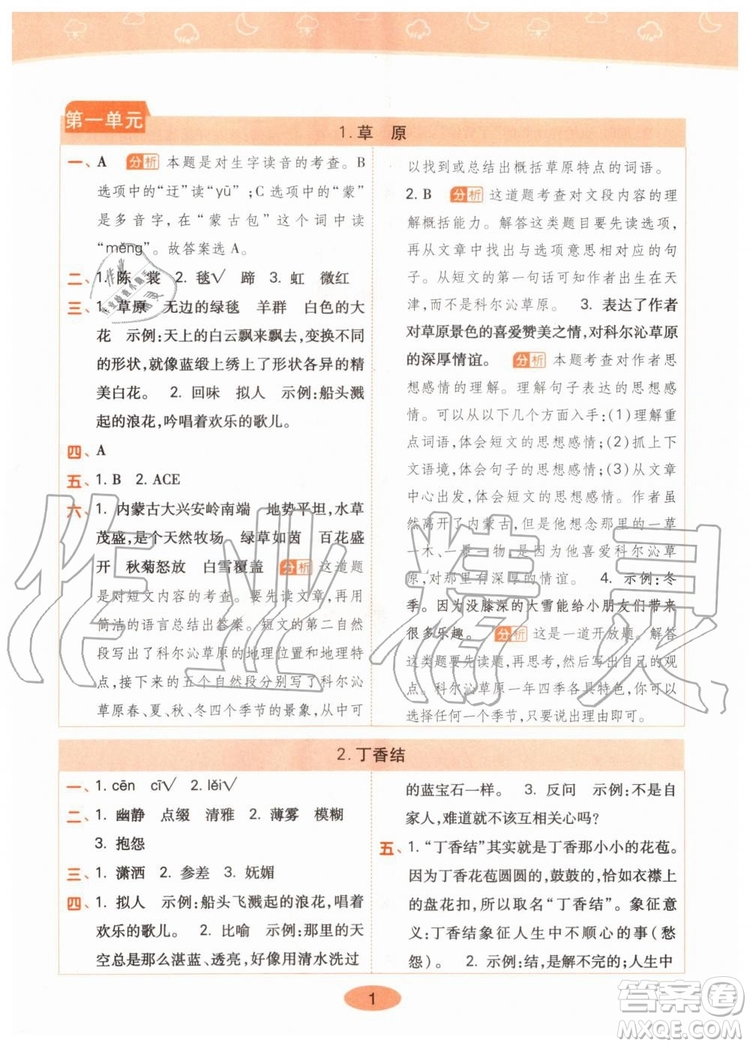 第一单元
1.草 原
一、 A 分析 本题是对生字读音的考查。B
选项中的“迂”读“yū”；C选项中的“蒙”
是多音字，在“蒙古包”这个词中读
“měng”。故答案选A。
二、 1. 陈 裳 2. 毯√ 蹄 3. 虹 微红
三、 1. 草原 无边的绿毯 羊群 白色的大
花 示例：天上的白云飘来飘去，变换不同
的形状，就像蓝缎上绣了各种各异的精
美白花。 2. 回味 拟人 示例：船头溅
起的浪花，吟唱着欢乐的歌儿。
四、 A
五、 1. B 2. ACE
六、 1. 内蒙古大兴安岭南端 地势平坦，水草
茂盛，是个天然牧场 绿草如茵 百花盛
开 秋菊怒放 白雪覆盖 分析 这道题
是对短文内容的考查。要先读文章，再用
简洁的语言总结出答案。短文的第二自然
段写出了科尔沁草原的地理位置和地理特
点，接下来的五个自然段分别写出了科尔沁
草原春、夏、秋、冬四个季节的景象，从中可
以找到或总结出概括草原特点的词语。
2. B 分析 这道题考查对文段内容的理
解概括能力。解答这类题目要先读选项，
再从文章中找出与选项意思相对应的句
子。从短文的第一句话可知作者出生在天
津，不是科尔沁草原。 3. 表达了作者
对草原景色的喜爱赞美之情，对科尔沁草原
的深厚情谊。 分析 本题考查对作者思想
感情的理解。理解句子表达的思想感
情，可以从以下几个方面入手：(1)理解重
点词语，体会短文的思想感情；(2)抓住上下
文语境，体会句子的思想感情；(3)从文章
中心出发，体会短文的思想感情。作者虽
然离开了内蒙古，但是仍想念那里的一草
一木，一景一物，更喜爱科尔沁草
原，对那里有深厚的情谊。 4. 示例：冬
季。因为没膝深的大雪能给小朋友们带来
很多乐趣。 分析 这是一道开放题。解答
这类题要先读题干，然后再说出自己的观
点。科尔沁草原一年四季各具特色，你可以
选择任何一个季节，说出理由即可。
2.丁香结
一、 1. cēn cī√ 2. lěi√
二、 1. 幽静 点缀 清雅 2. 薄雾 模糊
3. 抱怨
三、 1. 潇洒 2. 参差 3. 妩媚
四、 1. 拟人 示例：船头飞溅起的浪花，吟唱着
欢乐的歌儿。 2. 比喻 示例：那里的天
空总是那么湛蓝、透亮，好像用清水洗过
的蓝宝石一样。 3. 反问 示例：都是自
家人，难道就不应该互相关心吗？
五、 1. “丁香结”其实就是丁香那小小的花苞。
因为丁香花苞圆圆的，鼓鼓的，恰如衣襟上
的盘花扣，所以取名“丁香结”。象征意
义：丁香结象征人生中不顺心的事（愁
怨）。 2. 示例：结，是解不完的；人生中
1
作业精灵
答案圈